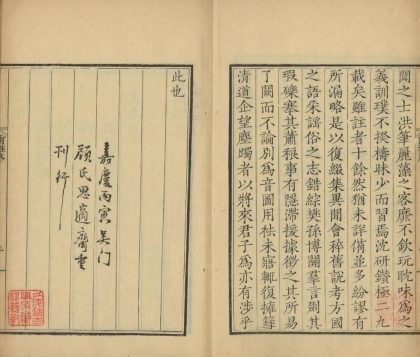 聞之士洪筆麗藻之客靡不欽玩耽味爲之
義訓璞不揆檮昧少而習焉沈研鑽極二九
載矣雖註者十餘然猶未詳備並多紛謬有
所漏略是以復綴集異聞會稡舊說考方國
之語采謠俗之志錯綜樊孫博關羣言剟其
瑕礫搴其蕭稂事有隱滯援據徵之其所易
了闕而不論別爲音圖用祛未寤輒復擁篲
清道企望塵躅者以將來君子爲亦有涉乎
此也
嘉慶丙寅吳門
顧氏思適齋重
刊行